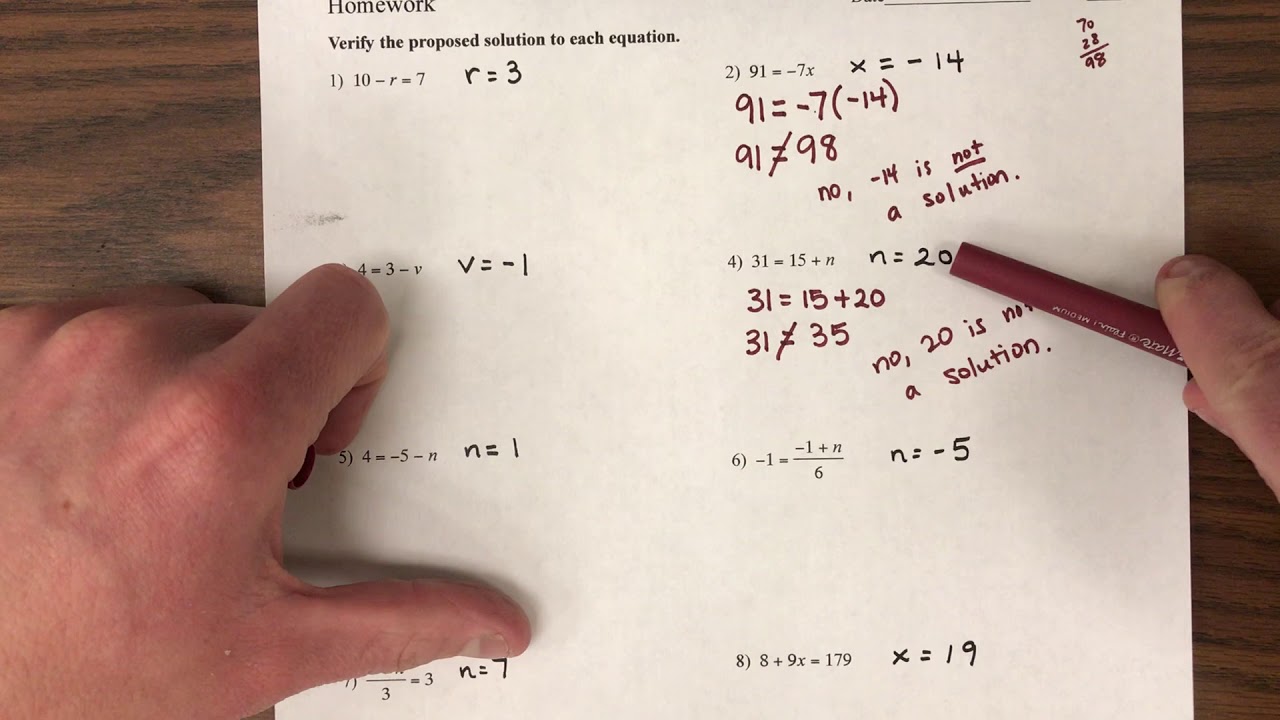 Homework
Verify the proposed solution to each equation.
1) 10 – r = 7 r = 3
2) 91 = –7x x = - 14
70
28
98
91 = -7(-14)
91 ≠ 98
no, -14 is not
a solution.
4 = 3 – v v = - 1
4) 31 = 15 + n n = 20
31 = 15+20
31 ≠ 35
no, 20 is not
a solution.
5) 4 = –5 – n n = 1
6) –1 = (–1 + n)/6 n = - 5
3 = 3 n = 7
8) 8 + 9x = 179 x = 19